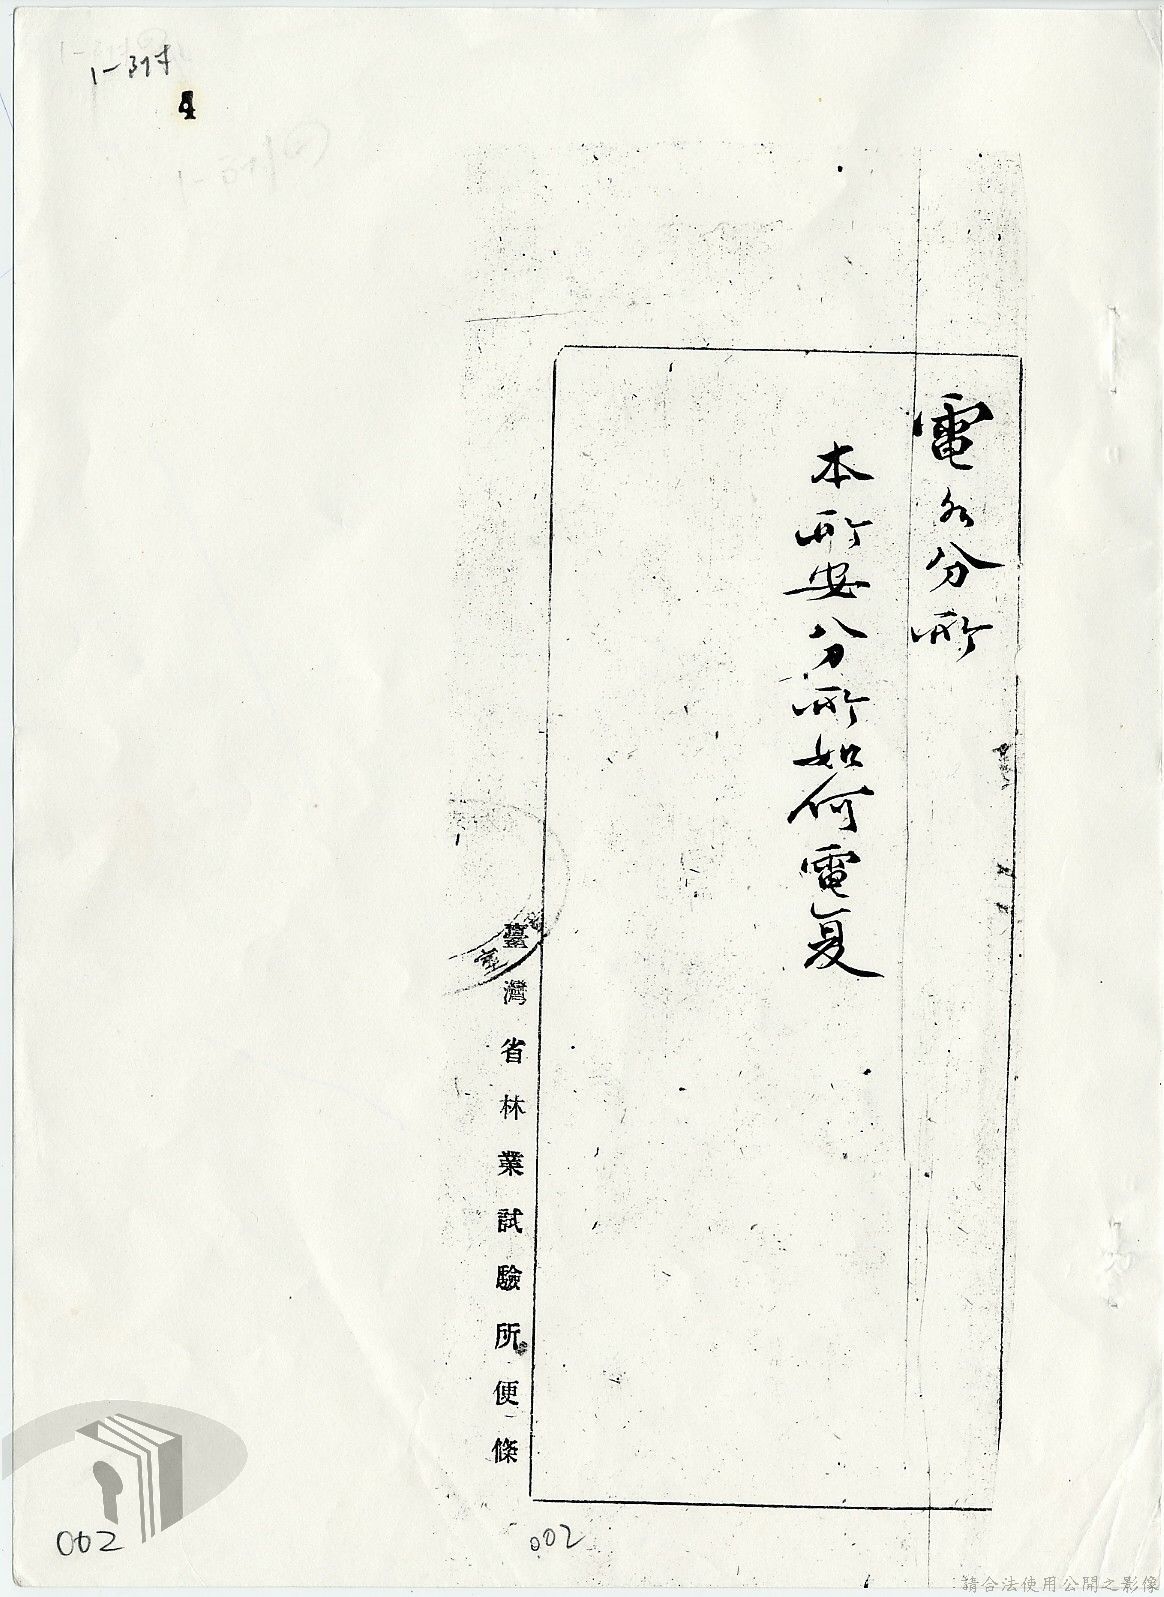 1-317
4
電各分所
本所安分所如何電复
臺灣省林業試驗所便條
室
002
002
請合法使用公開之影像